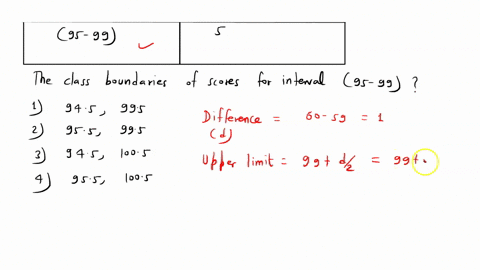 (95-99) 5
The class boundaries of scores for interval (95-99) ?
1) 94.5, 99.5
2) 95.5, 99.5
3) 94.5, 100.5
4) 95.5, 100.5
Difference = 60-59 = 1
(d)
Upper limit = 99 + d/2 = 99+.